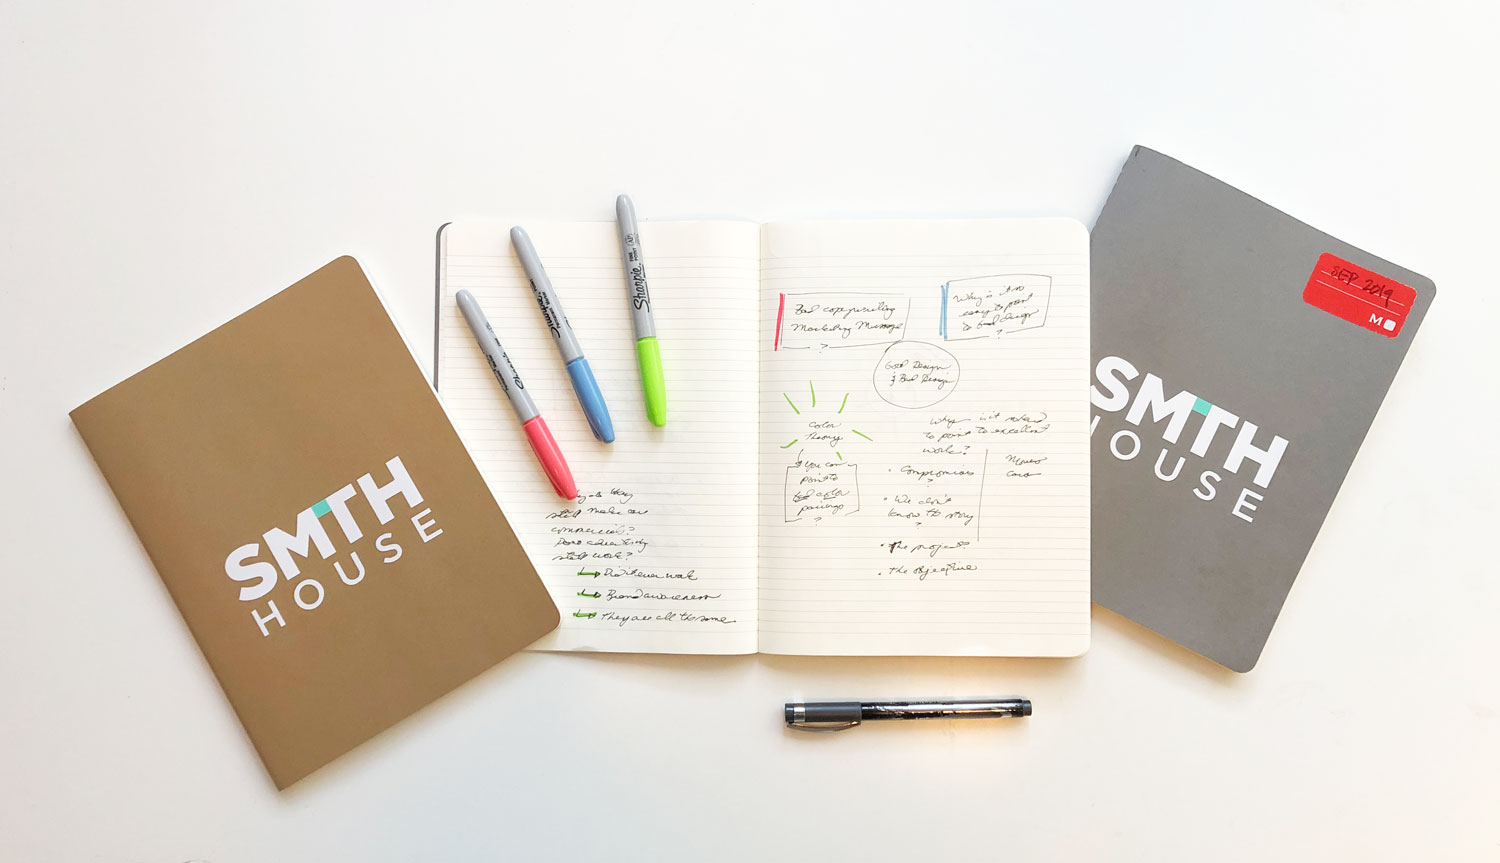 SMTH
HOUSE
Sharpie
FINE POINT
Sharpie
Sharpie
why
still make car
commercials?
still work?
Did it ever work
Brand awareness
They are all the same
Bad copywriting
Marketing Message
?
Why is it so
easy to point
to bad design
?
Good Design
& Bad Design
Color
Theory
You can
point to
bad color
pairings
?
Why is it so hard
to point to excellent
work?
• Compromises
?
• We don't
know the story
?
• The project?
• The objective
SEP 2019
M
SMTH
HOUSE